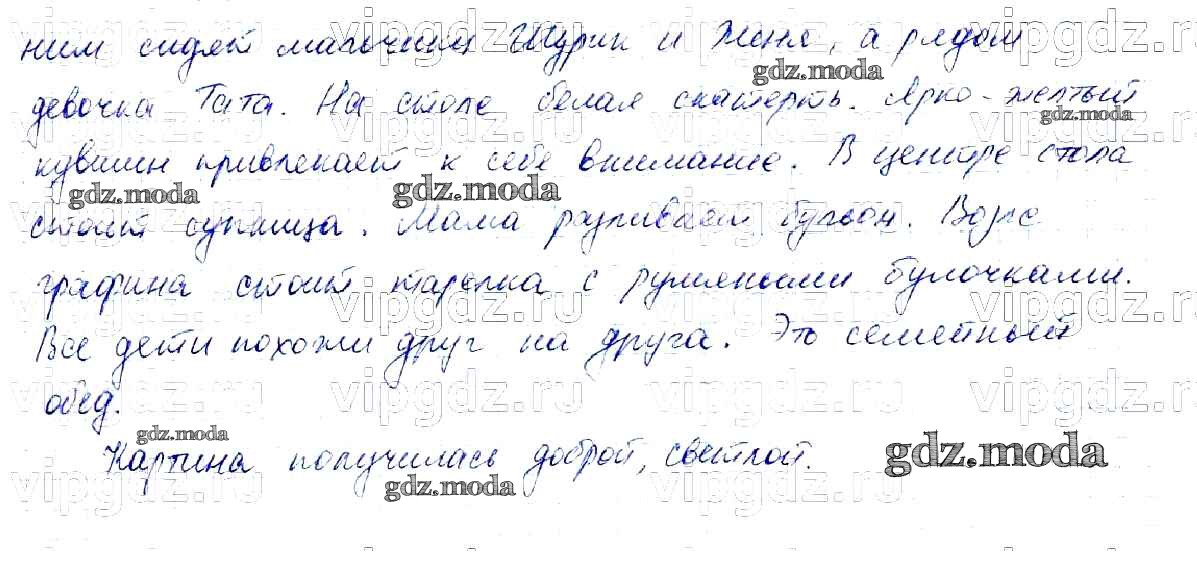 ним сидят мальчики Шурик и Женя, а рядом
девочка Тата. На столе белая скатерть. Ярко-желтый
кувшин привлекает к себе внимание. В центре стола
стоит супница. Мама разливает бульон. Возле
графина стоит тарелка с румяными булочками.
Все дети похожи друг на друга. Это семейный
обед.
Картина получилась доброй, светлой.
gdz.moda
gdz.moda
gdz.moda
gdz.moda
gdz.moda
gdz.moda
gdz.moda
vipgdz.ru